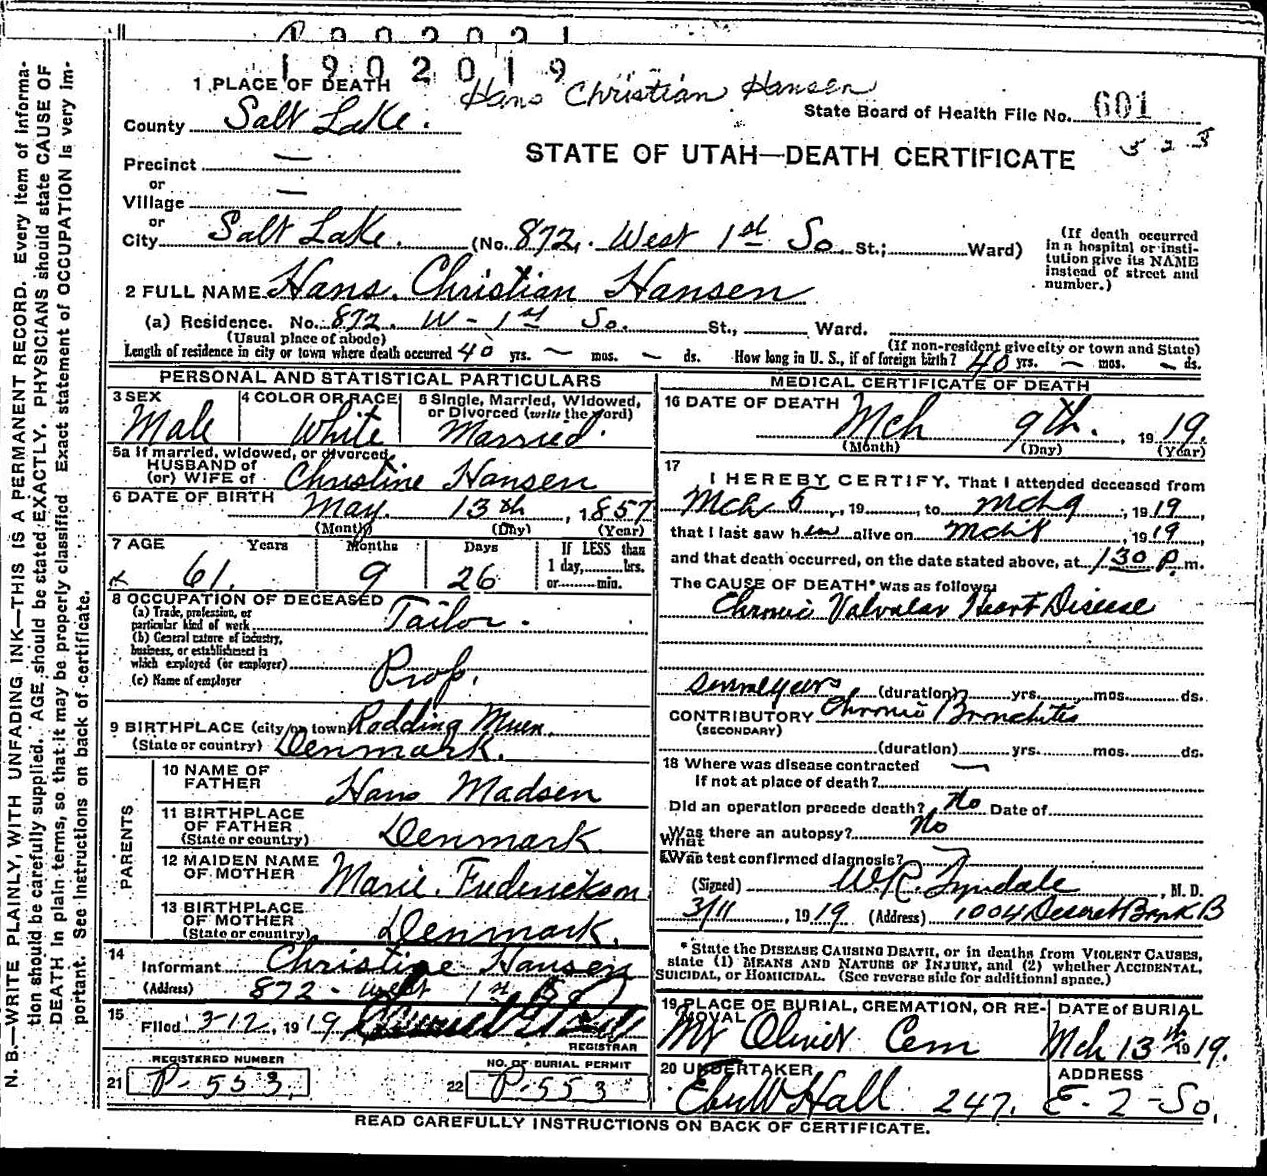 1902019
Hans Christian Hansen
1 PLACE OF DEATH
State Board of Health File No. 601
County Salt Lake.
323
STATE OF UTAH—DEATH CERTIFICATE
Precinct —
or
Village —
or
City Salt Lake. (No. 872. West 1st So St.; Ward)
(If death occurred in a hospital or institution give its NAME instead of street and number.)
2 FULL NAME Hans. Christian Hansen
(a) Residence. No. 872. W - 1st So. St., Ward.
(Usual place of abode) (If non-resident give city or town and State)
Length of residence in city or town where death occurred 40 yrs. — mos. — ds. How long in U. S., if of foreign birth? 40 yrs. — mos. — ds.
PERSONAL AND STATISTICAL PARTICULARS
3 SEX 4 COLOR OR RACE 5 Single, Married, Widowed, or Divorced (write the word)
Male White Married.
5a If married, widowed, or divorced
HUSBAND of
(or) WIFE of Christine Hansen
6 DATE OF BIRTH May 13th, 1857
(Month) (Day) (Year)
7 AGE Years Months Days If LESS than
1 day, hrs.
61. 9 26 or min.
8 OCCUPATION OF DECEASED
(a) Trade, profession, or particular kind of work Tailor.
(b) General nature of industry, business, or establishment in which employed (or employer) Prop.
(c) Name of employer
9 BIRTHPLACE (city or town) Rodding
(State or country) Denmark.
PARENTS
10 NAME OF FATHER Hans Madsen
11 BIRTHPLACE OF FATHER (State or country) Denmark.
12 MAIDEN NAME OF MOTHER Marie. Frederickson.
13 BIRTHPLACE OF MOTHER (State or country) Denmark.
14
Informant Christine Hansen
(Address) 872 - West 1st So
15
Filed 3-12, 1919
REGISTRAR
REGISTERED NUMBER NO. OF BURIAL PERMIT
21 P-553. 22 P-553
MEDICAL CERTIFICATE OF DEATH
16 DATE OF DEATH Mch 9th., 1919.
(Month) (Day) (Year)
17
I HEREBY CERTIFY, That I attended deceased from
Mch 6, 19, to Mch 9, 1919,
that I last saw him alive on Mch 8, 1919,
and that death occurred, on the date stated above, at 130 P. m.
The CAUSE OF DEATH* was as follows:
Chronic Valvular Heart Disease
several years (duration) yrs. mos. ds.
CONTRIBUTORY Chronic Bronchitis
(SECONDARY)
(duration) yrs. mos. ds.
18 Where was disease contracted
If not at place of death? —
Did an operation precede death? No Date of
Was there an autopsy? No
What
Was test confirmed diagnosis?
(Signed) W.R. Tyndale, M. D.
3/11, 1919 (Address) 1004 Deseret Bank B
* State the DISEASE CAUSING DEATH, or in deaths from VIOLENT CAUSES,
state (1) MEANS AND NATURE OF INJURY, and (2) whether ACCIDENTAL,
SUICIDAL, or HOMICIDAL. (See reverse side for additional space.)
19 PLACE OF BURIAL, CREMATION, OR REMOVAL DATE OF BURIAL
Mt Olivet Cem Mch 13th 1919.
20 UNDERTAKER ADDRESS
Eber W Hall 247. E-2-So.
READ CAREFULLY INSTRUCTIONS ON BACK OF CERTIFICATE.
N. B.—WRITE PLAINLY, WITH UNFADING INK—THIS IS A PERMANENT RECORD. Every item of information should be carefully supplied. AGE should be stated EXACTLY. PHYSICIANS should state CAUSE OF DEATH in plain terms, so that it may be properly classified. Exact statement of OCCUPATION is very important. See instructions on back of certificate.